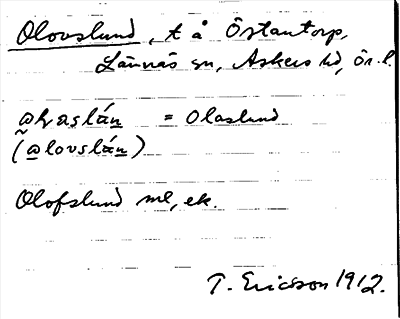 Olovslund, t å Östantorp,
Lännäs sn, Askers hd, Ör. l
= Olaslund
(alovslán)
Olofslund ml, ek.
T. Ericsson 1912.